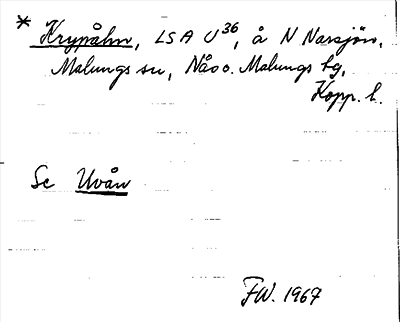 * Krypåhn, LSA U36, å N Narsjön,
Malungs sn, Nås o. Malungs tg,
Kopp. l.
Se Uvån
FW. 1967